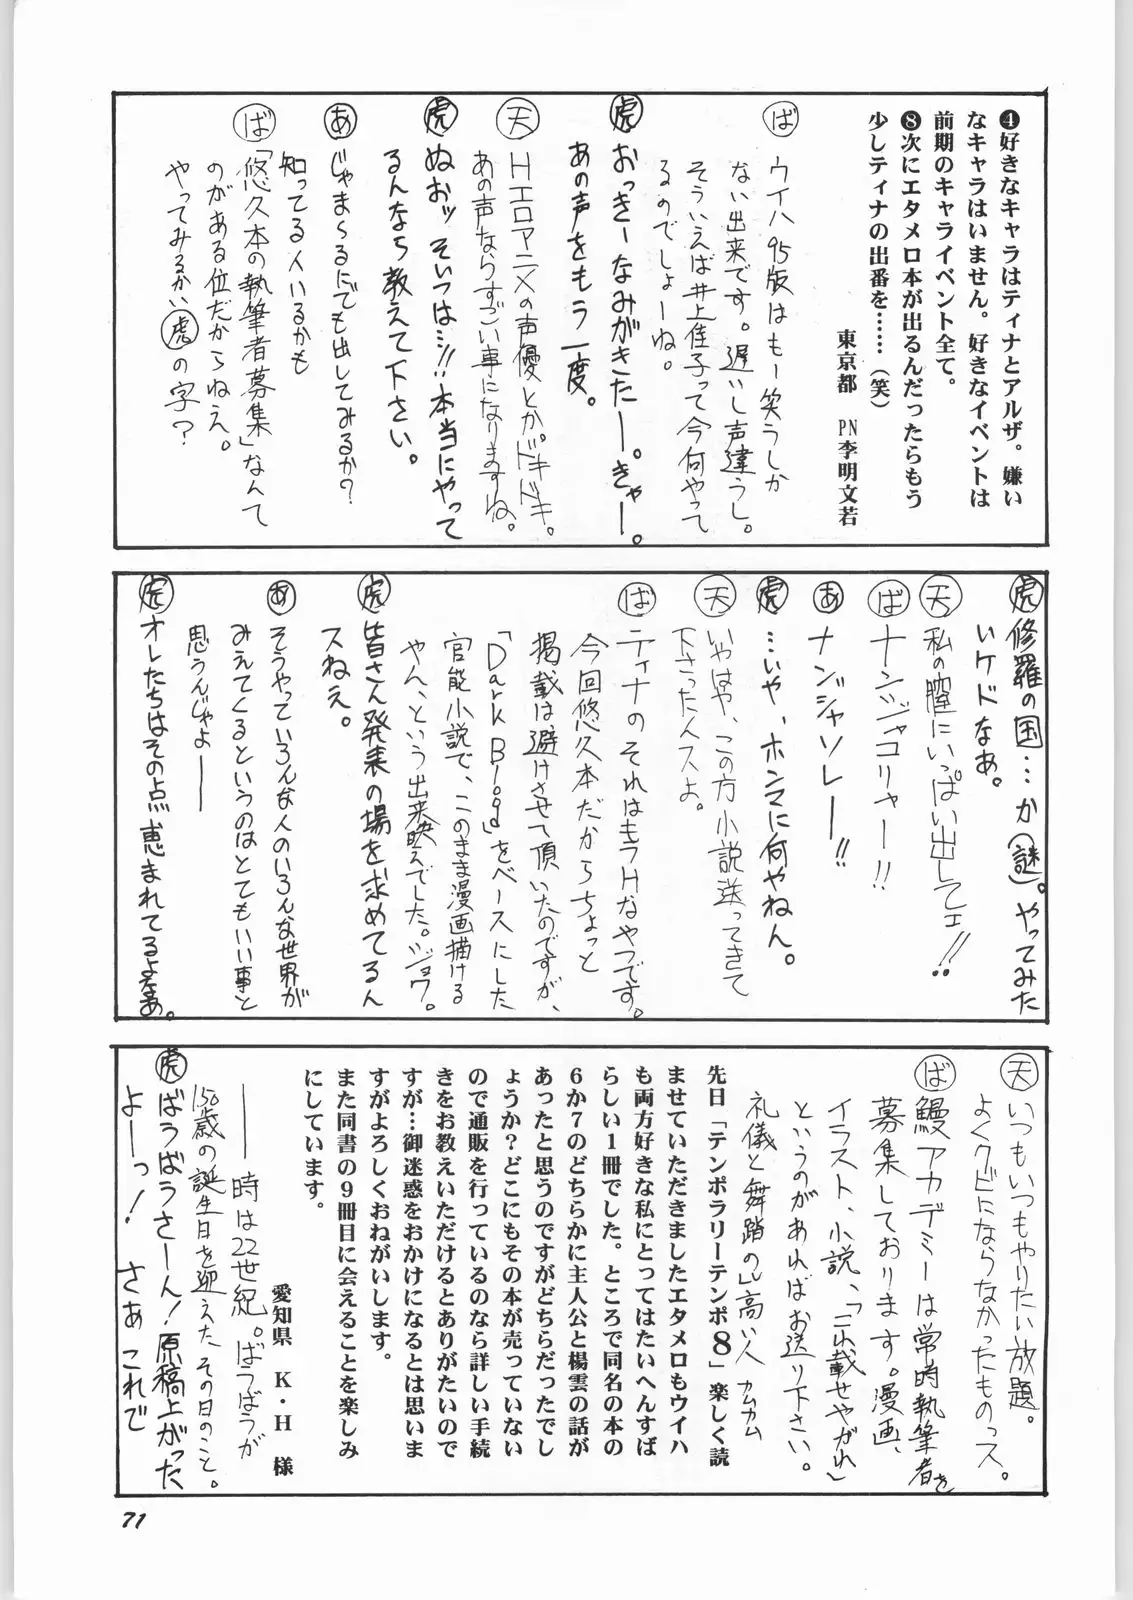 ❹好きなキャラはティナとアルザ。嫌い
なキャラはいません。好きなイベントは
前期のキャライベント全て。
❽次にエタメロ本が出るんだったらもう
少しティナの出番を……（笑）
東京都　PN李明文若
ば ウイハ95版はもー笑うしか
ない出来です。遅いし声違うし。
そういえば井上佳子って今何やって
るのでしょーね。
虎 おっきーなみがきたー。きゃー。
あの声をもう一度。
天 Hエロアニメの声優とか。ドキドキ。
あの声ならすごい事になりますね。
虎 ぬおッそいつは…!!本当にやって
るんなら教えて下さい。
あ じゃま～るにでも出してみるか？
知ってる人いるかも
ば 「悠久本の執筆者募集」なんて
のがある位だからねえ。
やってみるかい虎の字？
虎 修羅の国…か（謎）。やってみた
いケドなあ。
天 私の膣にいっぱい出してェ!!
ば ナンジャコリャー!!
あ ナンジャソレー!!
虎 …いや、ホンマに何やねん。
天 いやはや、この方小説送ってきて
下さった人スよ。
ば ティナのそれはもうHなやつです。
今回悠久本だからちょっと
掲載は避けさせて頂いたのですが、
「Dark Blood」をベースにした
官能小説で、このまま漫画描ける
やん、という出来映えでした。ジョワ。
虎 皆さん発表の場を求めてるん
スねえ。
あ そうやっていろんな人のいろんな世界が
みえてくるというのはとてもいい事と
思うんじゃよ――
虎 オレたちはその点恵まれてるよなあ。
天 いつもいつもやりたい放題。
よくクビにならなかったものっス。
ば 鰻アカデミーは常時執筆者を
募集しております。漫画、
イラスト、小説、「これ載せやがれ」
というのがあればお送り下さい。
礼儀と舞踏の」高い人 カムカム
先日「テンポラリーテンポ８」楽しく読
ませていただきましたエタメロもウイハ
も両方好きな私にとってはたいへんすば
らしい１冊でした。ところで同名の本の
６か７のどちらかに主人公と楊雲の話が
あったと思うのですがどちらだったでし
ょうか？どこにもその本が売っていない
ので通販を行っているのなら詳しい手続
きをお教えいただけるとありがたいので
すが…御迷惑をおかけになるとは思いま
すがよろしくおねがいします。
また同書の９冊目に会えることを楽しみ
にしています。
愛知県　Ｋ・Ｈ　様
――時は22世紀。ばうばうが
150歳の誕生日を迎えたその日のこと。
虎 ばうばうさーん！原稿上がった
よーっ！ さあこれで
71